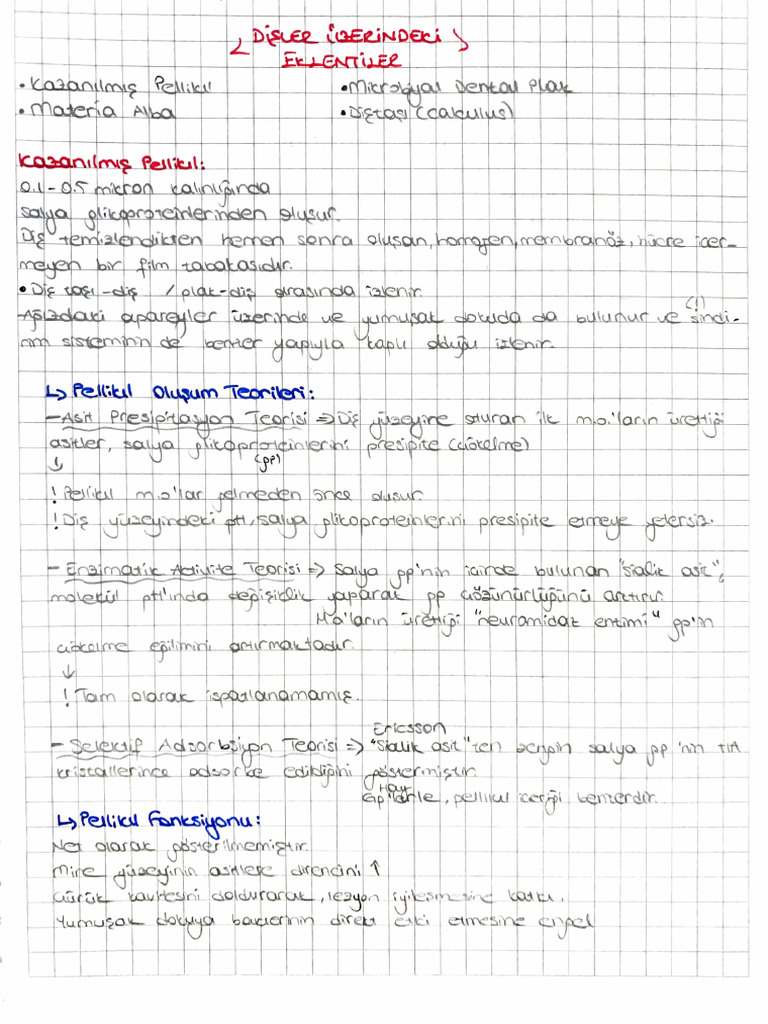 DİŞLER ÜZERİNDEKİ
EKLENTİLER
• Kazanılmış Pellikıl • Mikrobiyal Dental Plak
• Materia Alba • Diştaşı (calculus)
Kazanılmış Pellikıl:
0.1-0.5 mikron kalınlığında
Salya glikoproteinlerinden oluşur.
Diş temizlendikten hemen sonra oluşan, homojen, membranöz, hücre içer-
meyen bir film tabakasıdır.
• Diş taşı-diş / plak-diş arasında izlenir.
(!)
-Ağızdaki apareyler üzerinde ve yumuşak dokuda da bulunur ve sindi-
rim sisteminin de benzer yapıyla kaplı olduğu izlenir.
↳ Pellikıl Oluşum Teorileri:
- Asit Presipitasyon Teorisi ⇒ Diş yüzeyine oturan ilk m.o.'ların ürettiği
asitler, salya glikoproteinlerini presipite (çökelme)
↓ (gp)
! Pellikıl m.o'lar gelmeden önce oluşur.
! Diş yüzeyindeki pH, salya glikoproteinlerini presipite etmeye yetersiz.
- Enzimatik Aktivite Teorisi ⇒ Salya gp'nin içinde bulunan "sialik asit",
molekül pH'ında değişiklik yaparak gp çözünürlüğünü arttırır.
M.o'ların ürettiği "neuramidaz enzimi" gp'in
çökelme eğilimini artırmaktadır.
↓
! Tam olarak ispatlanamamış.
Ericsson
- Selektif Adsorbsiyon Teorisi ⇒ "Sialik asit"ten zengin salya gp'nin HA
kristallerince adsorbe edildiğini göstermiştir.
Hay
Gp'lerle, pellikıl içeriği benzerdir.
↳ Pellikıl Fonksiyonu:
Net olarak gösterilmemiştir.
Mine yüzeyinin asitlere direncini ↑
Çürük kavitesini doldurarak, lezyon iyileşmesine katkı.
Yumuşak dokuya bakterinin direkt etki etmesine engel